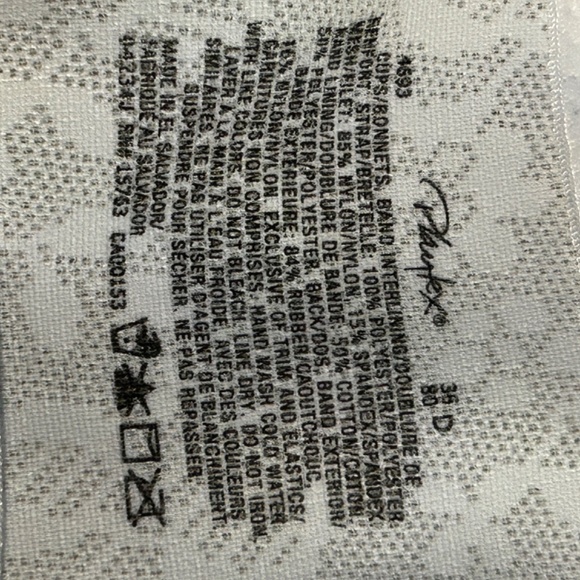 Playtex®
36 D
80 D
4693
CUPS/BONNETS, BAND INTERLINING/DOUBLURE DE
RENFORT, STRAP/BRETELLE: 100% POLYESTER/POLYESTER
85% NYLON/NYLON, 15% SPANDEX/SPANDEX
BAND LINING/DOUBLURE DE BANDE: 50% COTTON/COTON
50% POLYESTER/POLYESTER, BACK/DOS, BAND EXTERIOR/
BANDE EXTERIEURE: 84% RUBBER/CAOUTCHOUC,
16% NYLON/NYLON. EXCLUSIVE OF TRIM AND ELASTICS/
GARNITURES NON COMPRISES. HAND WASH COLD WATER
WITH LIKE COLORS. DO NOT BLEACH. LINE DRY. DO NOT IRON.
LAVER À LA MAIN À L'EAU FROIDE, AVEC DES COULEURS
SIMILAIRES. NE PAS UTILISER D'AGENT DE BLANCHIMENT.
SUSPENDRE POUR SÉCHER. NE PAS REPASSER.
MADE IN EL SALVADOR/
FABRIQUÉ AU SALVADOR
CA00153